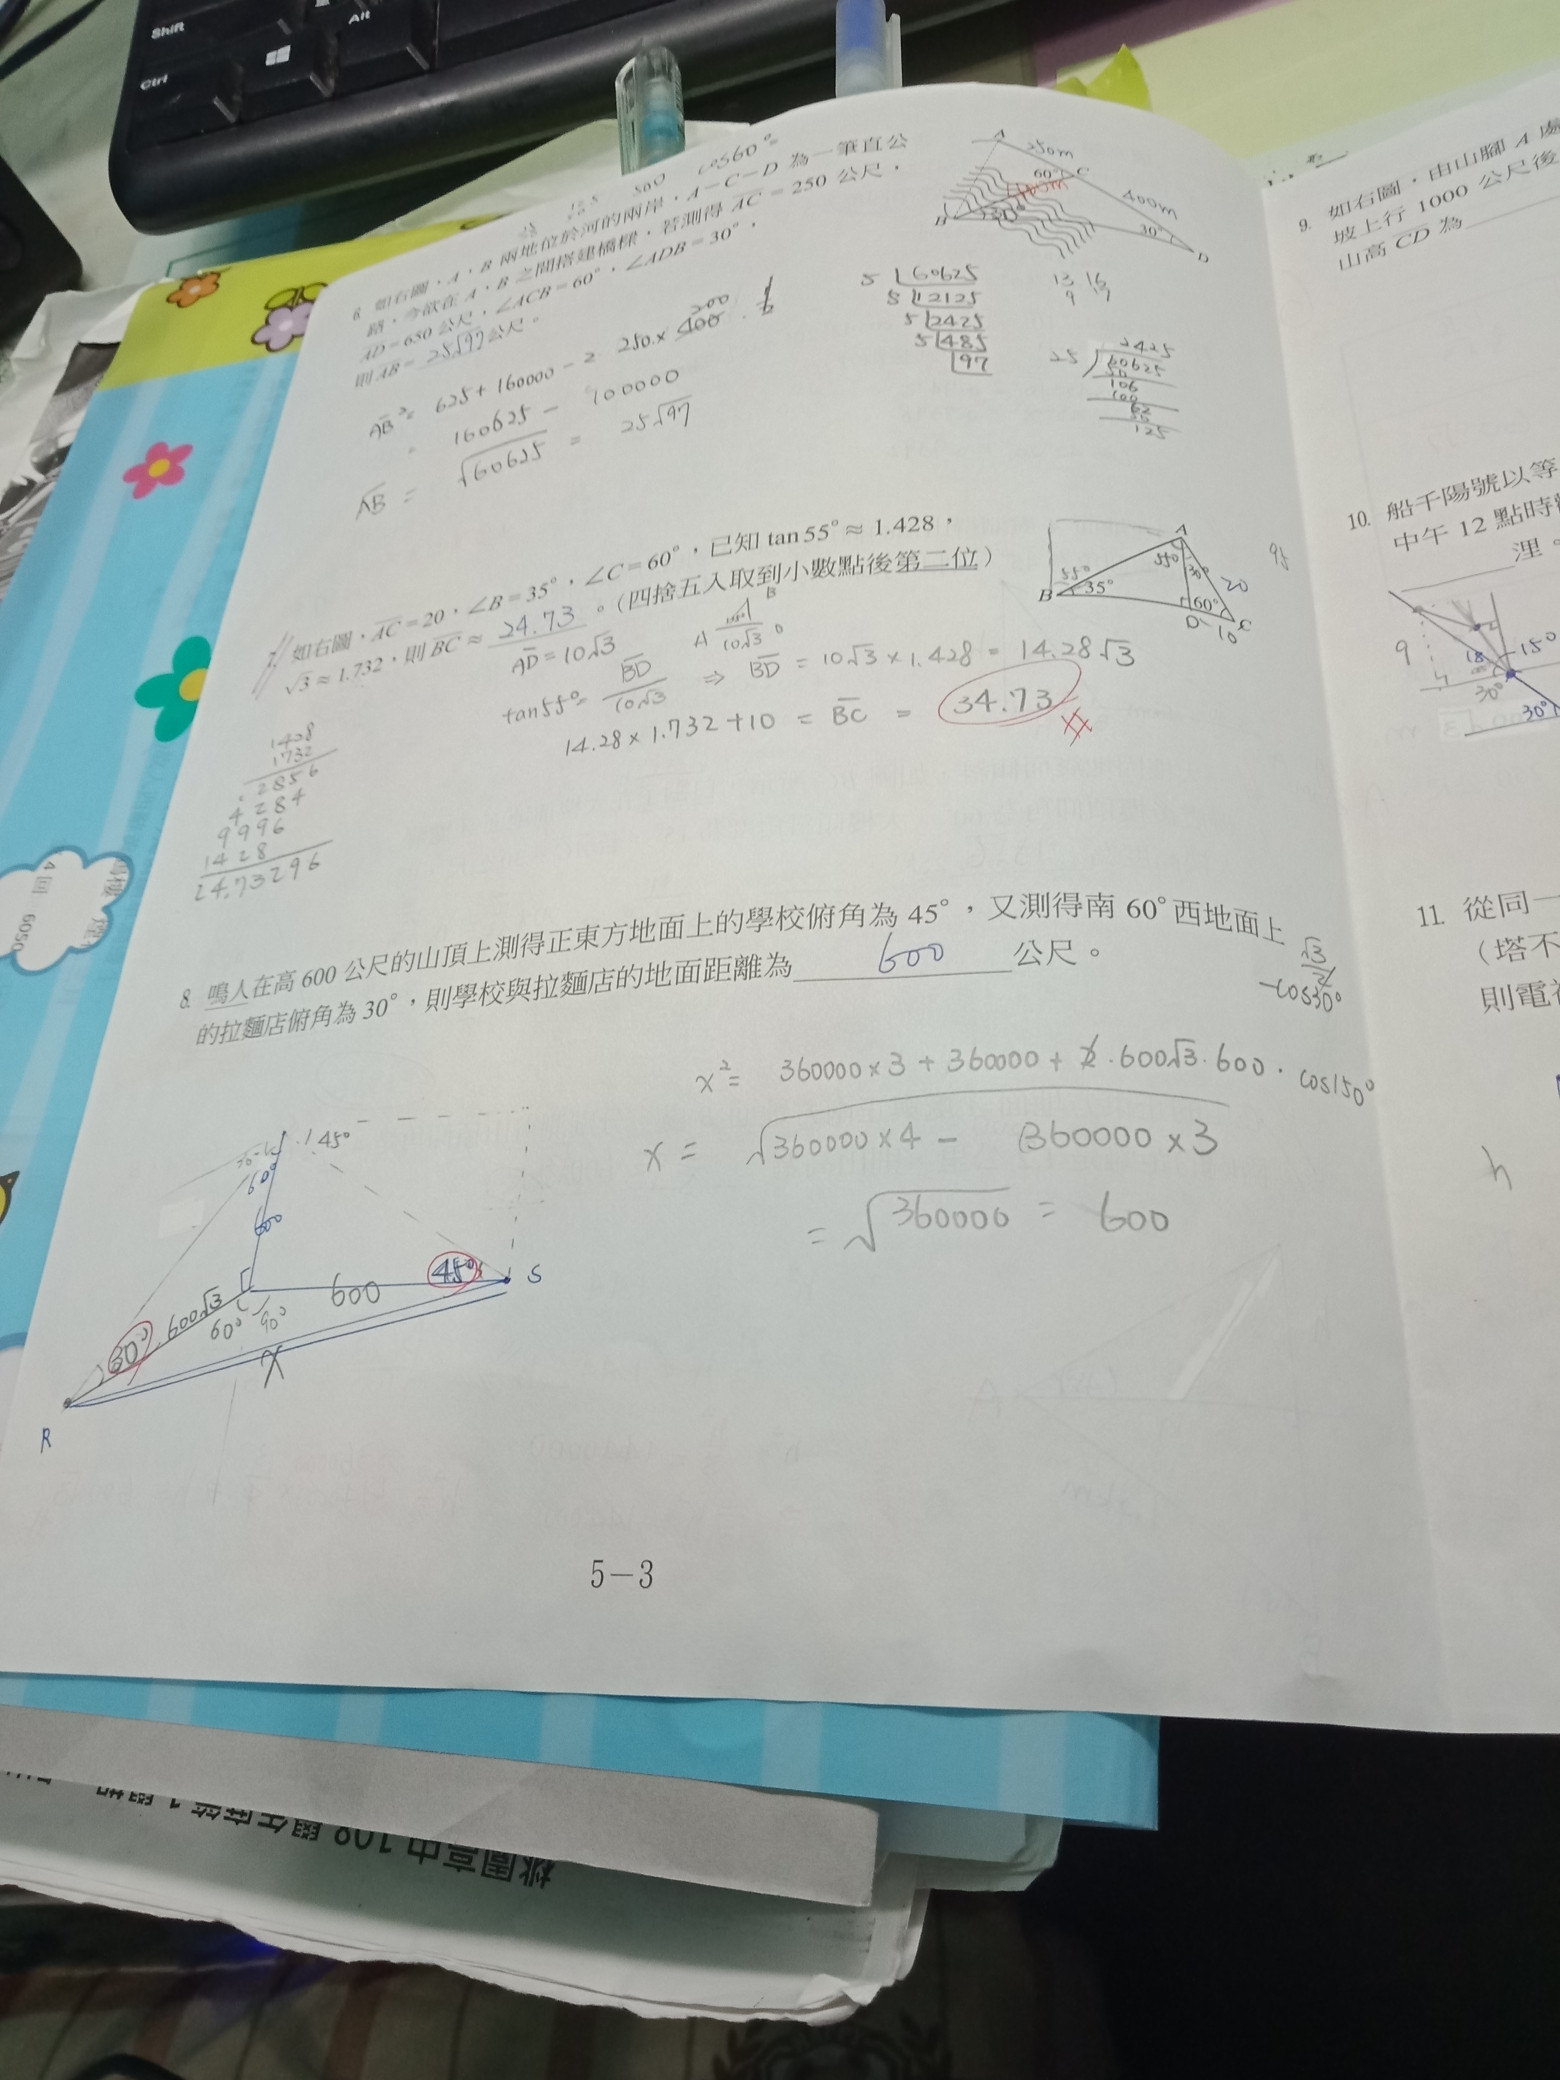 Shift
Alt
Ctrl
cos60°
6. 如右圖，A、B 兩地位於河的兩岸，A－C－D 為一筆直公
路，今欲在 A、B 之間搭建橋樑，若測得 AC = 250 公尺，
AD = 650 公尺，∠ACB = 60°，∠ADB = 30°，
則 AB = 25√97 公尺。
A
250m
60°
C
400m
400m
B
30°
30°
D
AB² = 625 + 160000 - 2 250 × 400 200 · 1/2
= 160625 - 100000
AB = √60625 = 25√97
5 60625
5 12125
5 2425
5 485
97
13 16
9 17
2425
25 60625
50
106
100
62
50
125
7. 如右圖，AC = 20，∠B = 35°，∠C = 60°，已知 tan 55° ≈ 1.428，
√3 ≈ 1.732，則 BC ≈ 24.73 。（四捨五入取到小數點後第二位）
A
55° 30°
20
55°
B 35°
60°
D 10 C
AD = 10√3
tan55° = BD/10√3 ⇒ BD = 10√3 × 1.428 = 14.28√3
14.28 × 1.732 + 10 = BC = 34.73
1428
1732
2856
4284
9996
1428
24.73296
8. 鳴人在高 600 公尺的山頂上測得正東方地面上的學校俯角為 45°，又測得南 60° 西地面上
的拉麵店俯角為 30°，則學校與拉麵店的地面距離為 600 公尺。
√3/2
-cos30°
x² = 360000×3 + 360000 + 2·600√3·600·cos150°
x = √360000×4 - 360000×3
= √360000 = 600
45°
60°
600
45° S
600
600√3
60° 90°
30°
X
R
5－3
9. 如右圖，由山腳 A 處
坡上行 1000 公尺後
山高 CD 為
10. 船千陽號以等
中午 12 點時
浬。
9
18
15°
30°
30°
11. 從同一
（塔不
則電視
h
4 回
6050
桃園高中 108 學年度第 1 學期